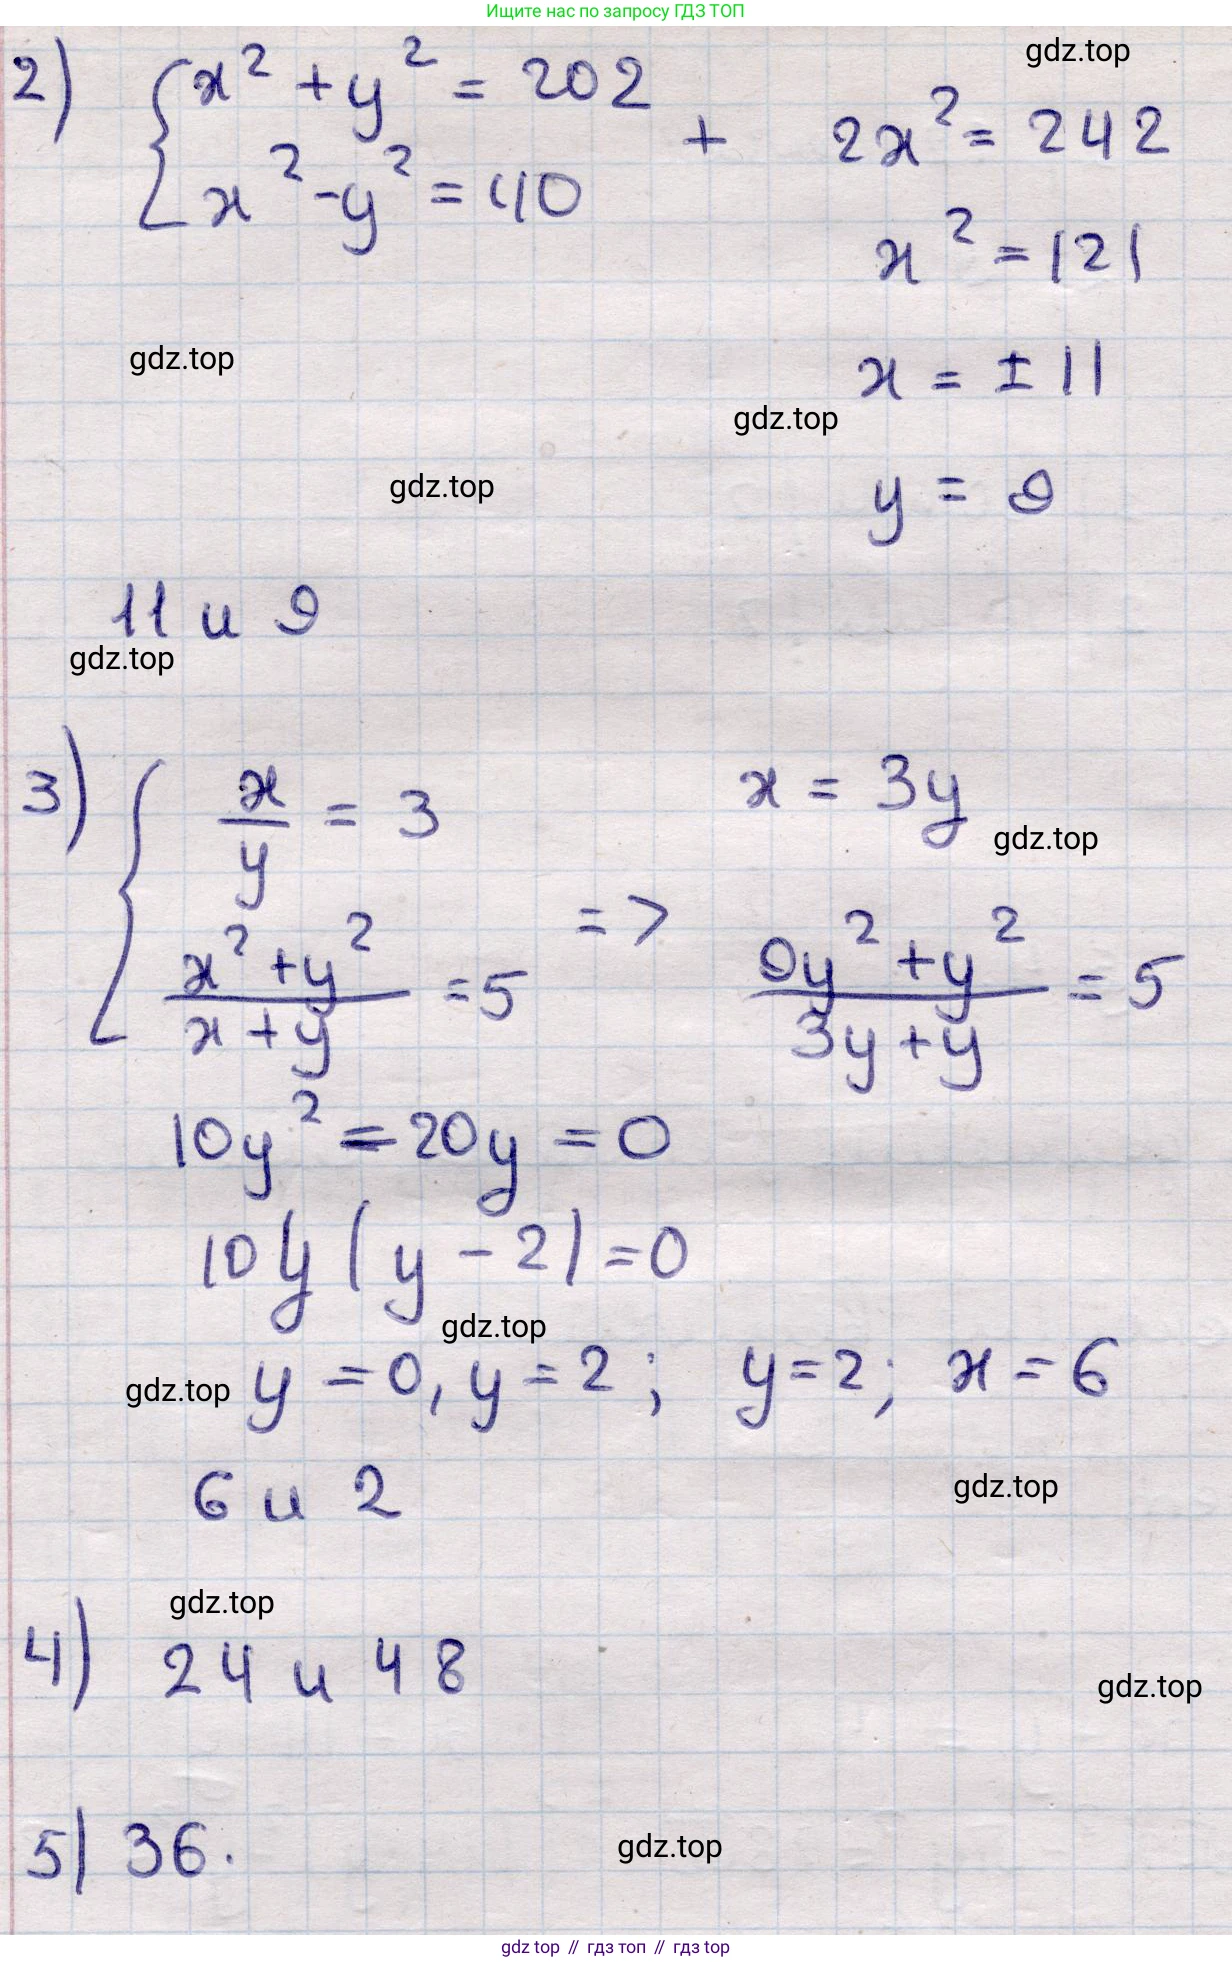 Ищите нас по запросу ГДЗ ТОП
gdz.top
2) { x² + y² = 202
x² - y² = 40
+
2x² = 242
x² = 121
gdz.top
x = ± 11
gdz.top
gdz.top
y = 9
11 и 9
gdz.top
3) { x/y = 3
x = 3y
gdz.top
(x² + y²)/(x + y) = 5 => (9y² + y²)/(3y + y) = 5
10y² - 20y = 0
10y (y - 2) = 0
gdz.top
gdz.top
y = 0, y = 2 ; y = 2 ; x = 6
6 и 2
gdz.top
gdz.top
4) 24 и 48
gdz.top
5) 36.
gdz.top
gdz top // гдз топ // gdz top